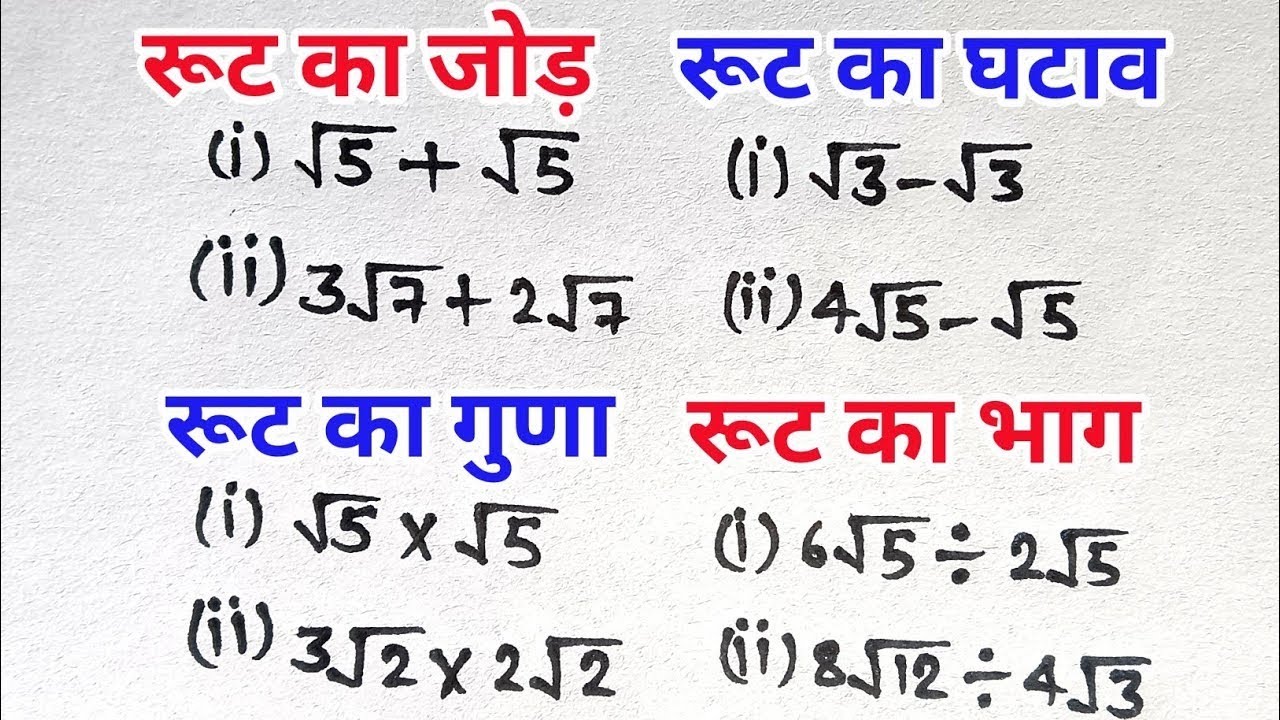 रूट का जोड़
(i) √5 + √5
(ii) 3√7 + 2√7
रूट का घटाव
(i) √3 - √3
(ii) 4√5 - √5
रूट का गुणा
(i) √5 × √5
(ii) 3√2 × 2√2
रूट का भाग
(i) 6√5 ÷ 2√5
(ii) 8√12 ÷ 4√3